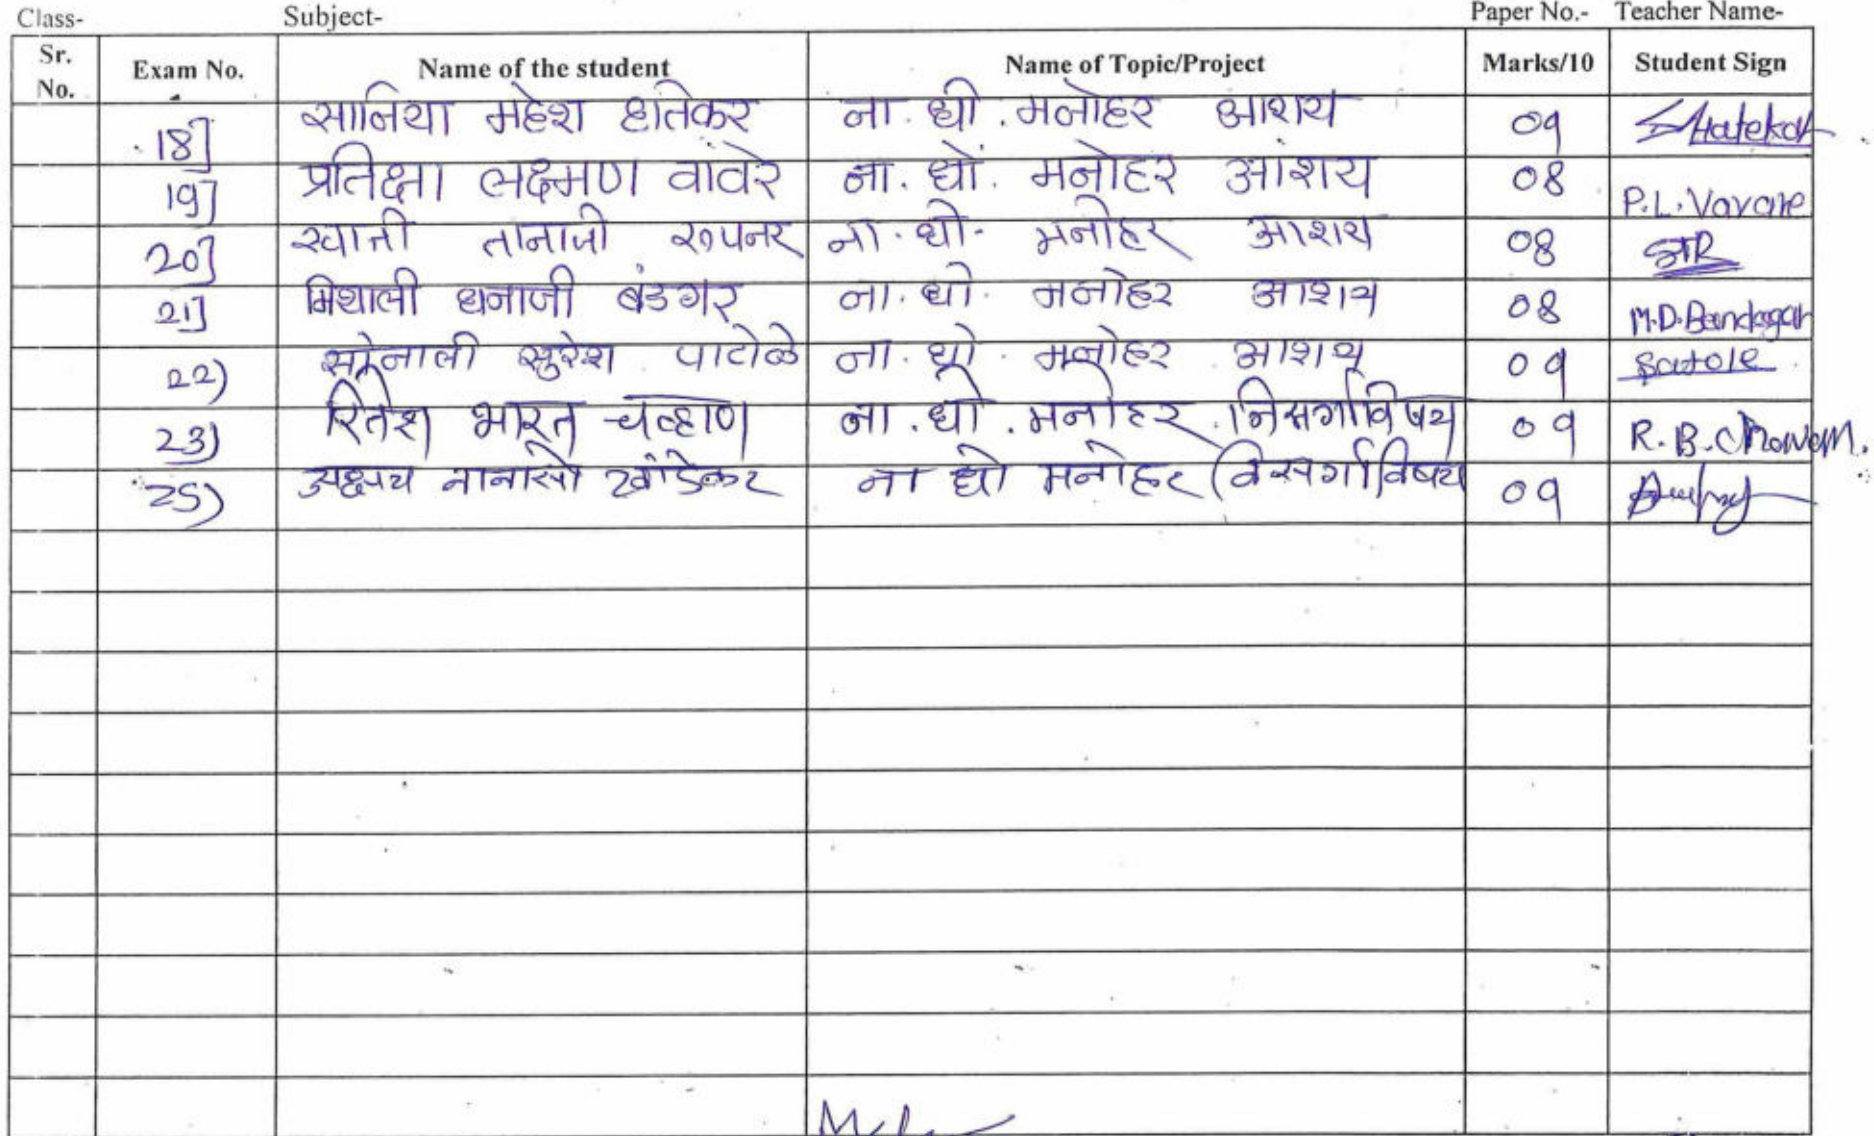 Class- Subject- Paper No.- Teacher Name-
Sr. No. Exam No. Name of the student Name of Topic/Project Marks/10 Student Sign
18] सानिया महेश हातेकर ना. धो. मनोहर आशय 09 Hatekar
19] प्रतिक्षा लक्ष्मण वावरे ना. धों. मनोहर आशय 08 P.L. Vavare
20] स्वाती तानाजी रुपनर ना. धो. मनोहर आशय 08
21] मिथाली धनाजी बंडगर ना. धो. मनोहर आशय 08 M.D. Bandagar
22) सोनाली सुरेश पाटोळे ना. धो. मनोहर आशय 09
23) रितेश भारत चव्हाण ना. धो. मनोहर निसर्गाविषय 09 R. B. Chavan.
25) अक्षय नानासो खांडेकर ना धो मनोहर 09